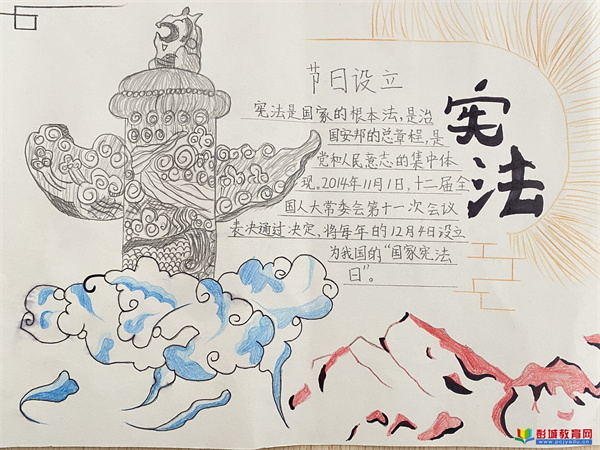 节日设立
宪法是国家的根本法，是治
国安邦的总章程，是
党和人民意志的集中体
现。2014年11月1日，十二届全
国人大常委会第十一次会议
表决通过决定，将每年的12月4日设立
为我国的“国家宪法
日”。
宪法
彭城教育网
www.pcjyedu.cn